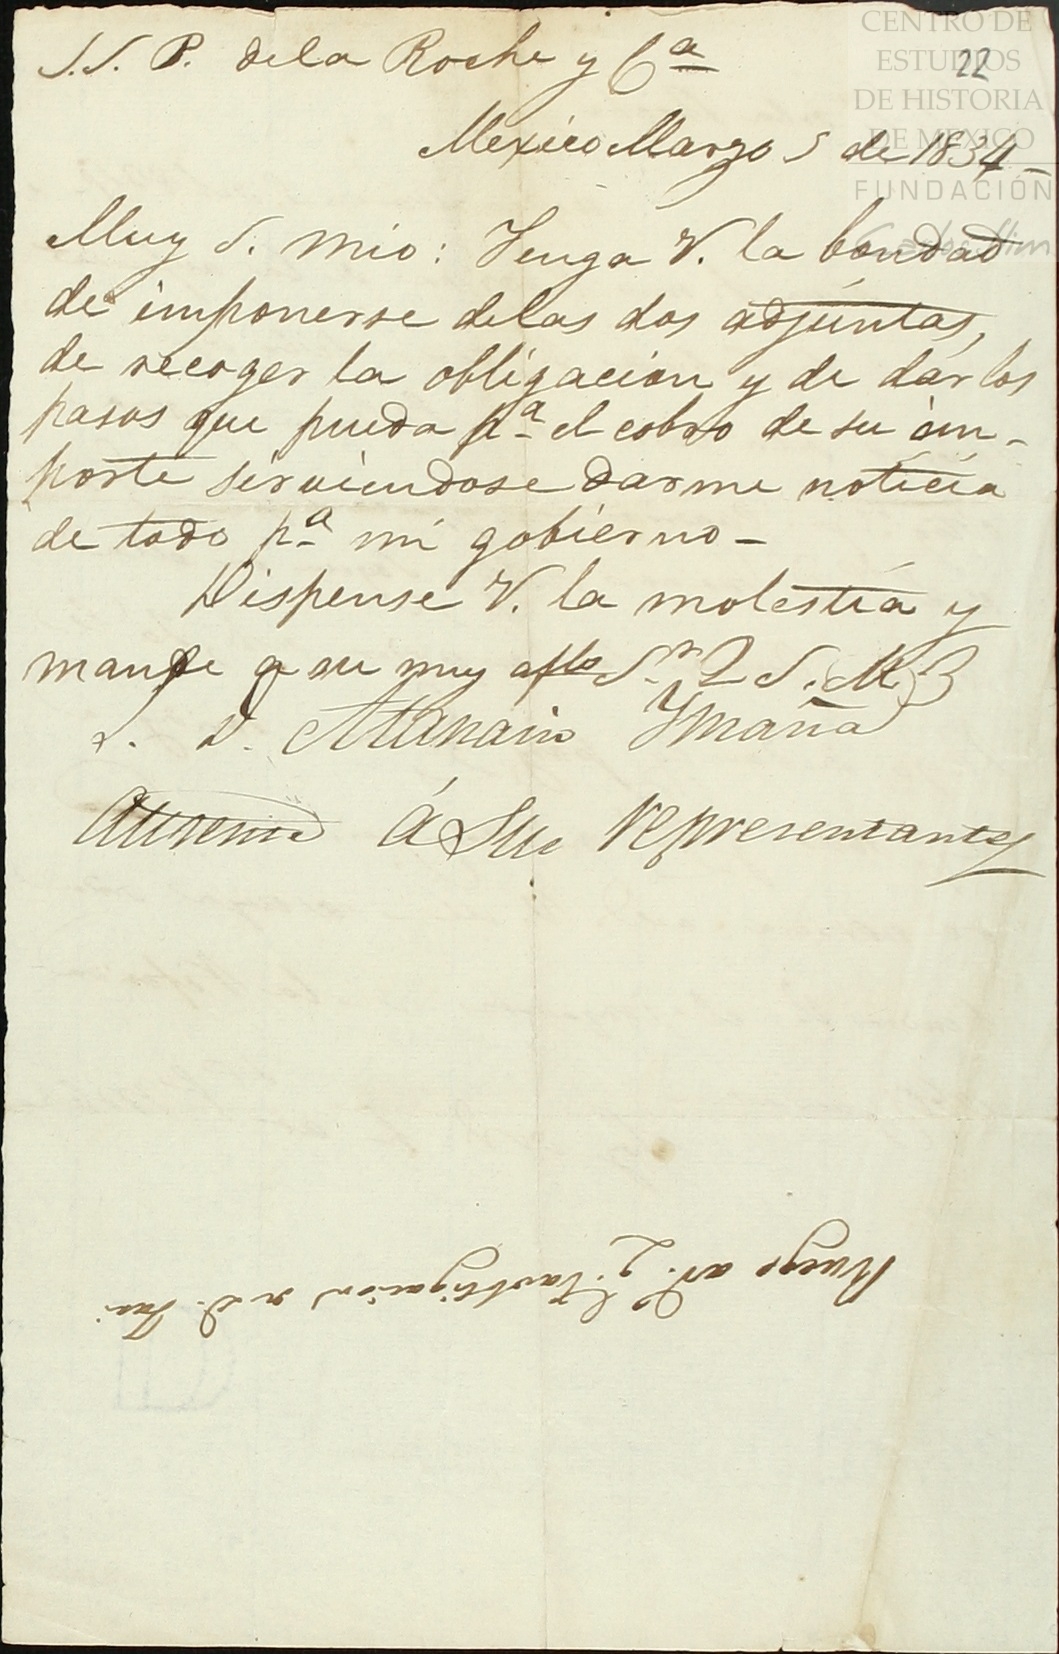 CENTRO DE
ESTUDIOS
DE HISTORIA
DE MEXICO
FUNDACIÓN
22
S.S. P. dela Roche y Cª
Mexico Marzo 5 de 1834
Muy S. mio: Tenga V. la bondad
de imponerse delas dos adjuntas,
de recoger la obligacion y de dar los
pasos que pueda pª el cobro de su im-
porte sirviendose darme noticia
de todo pª mi gobierno-
Dispense V. la molestia y
mande a su muy afto S. Q S. M. B
S. D. Atanacio Ymaña
Ausente á Sus representantes
Ruego a V. q. la obligacion a d.